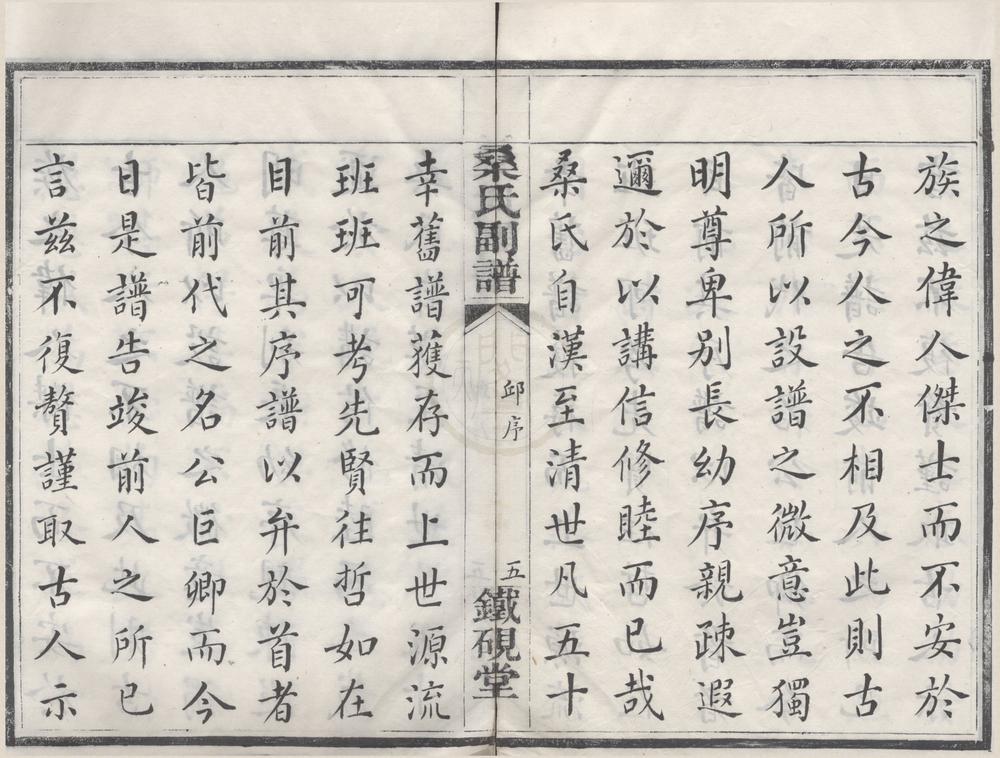 族之偉人傑士而不安於
古今人之不相及此則古
人所以設譜之微意豈獨
明尊卑別長幼序親疎遐
邇於以講信修睦而已哉
桑氏自漢至清世凡五十
桑氏副譜
邱序
五
鐵硯堂
幸舊譜獲存而上世源流
班班可考先賢往哲如在
目前其序譜以弁於首者
皆前代之名公巨卿而今
日是譜告竣前人之所已
言茲不復贅謹取古人示